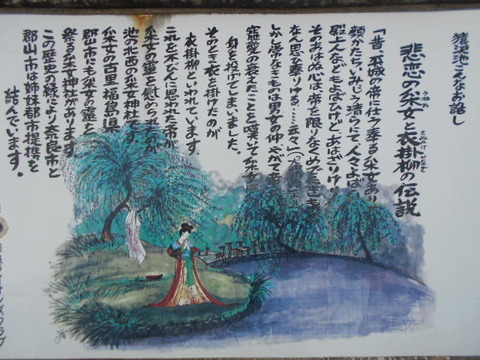 猿沢池こんなお話し
悲恋の采女と衣掛柳の伝説
うねめ
きぬかけやなぎ
「昔、平城の帝に仕う奉る采女あり
顔かたちいみじう清らにて人々よばひ
殿上人などもよばひけれどあはざりけり
そのあはぬ心は、帝を限りなくめでたきものに
なん思ひ奉りける、……云々」
しかし常なきものは男女の仲、やがて帝の
寵愛の衰えたことを嘆いて采女は
身を投げてしまいました。
そのとき衣を掛けたのが
衣掛柳といわれています
これを末くんに思われた帝が
采女の霊を慰めら
池の北西の采女神社です。
采女の古里福島県
郡山市にも采女の霊を
祭る采女神社があります。
この歴史の縁により奈良市と
郡山市は姉妹都市提携を
結んでいます。
ライオンズクラブ